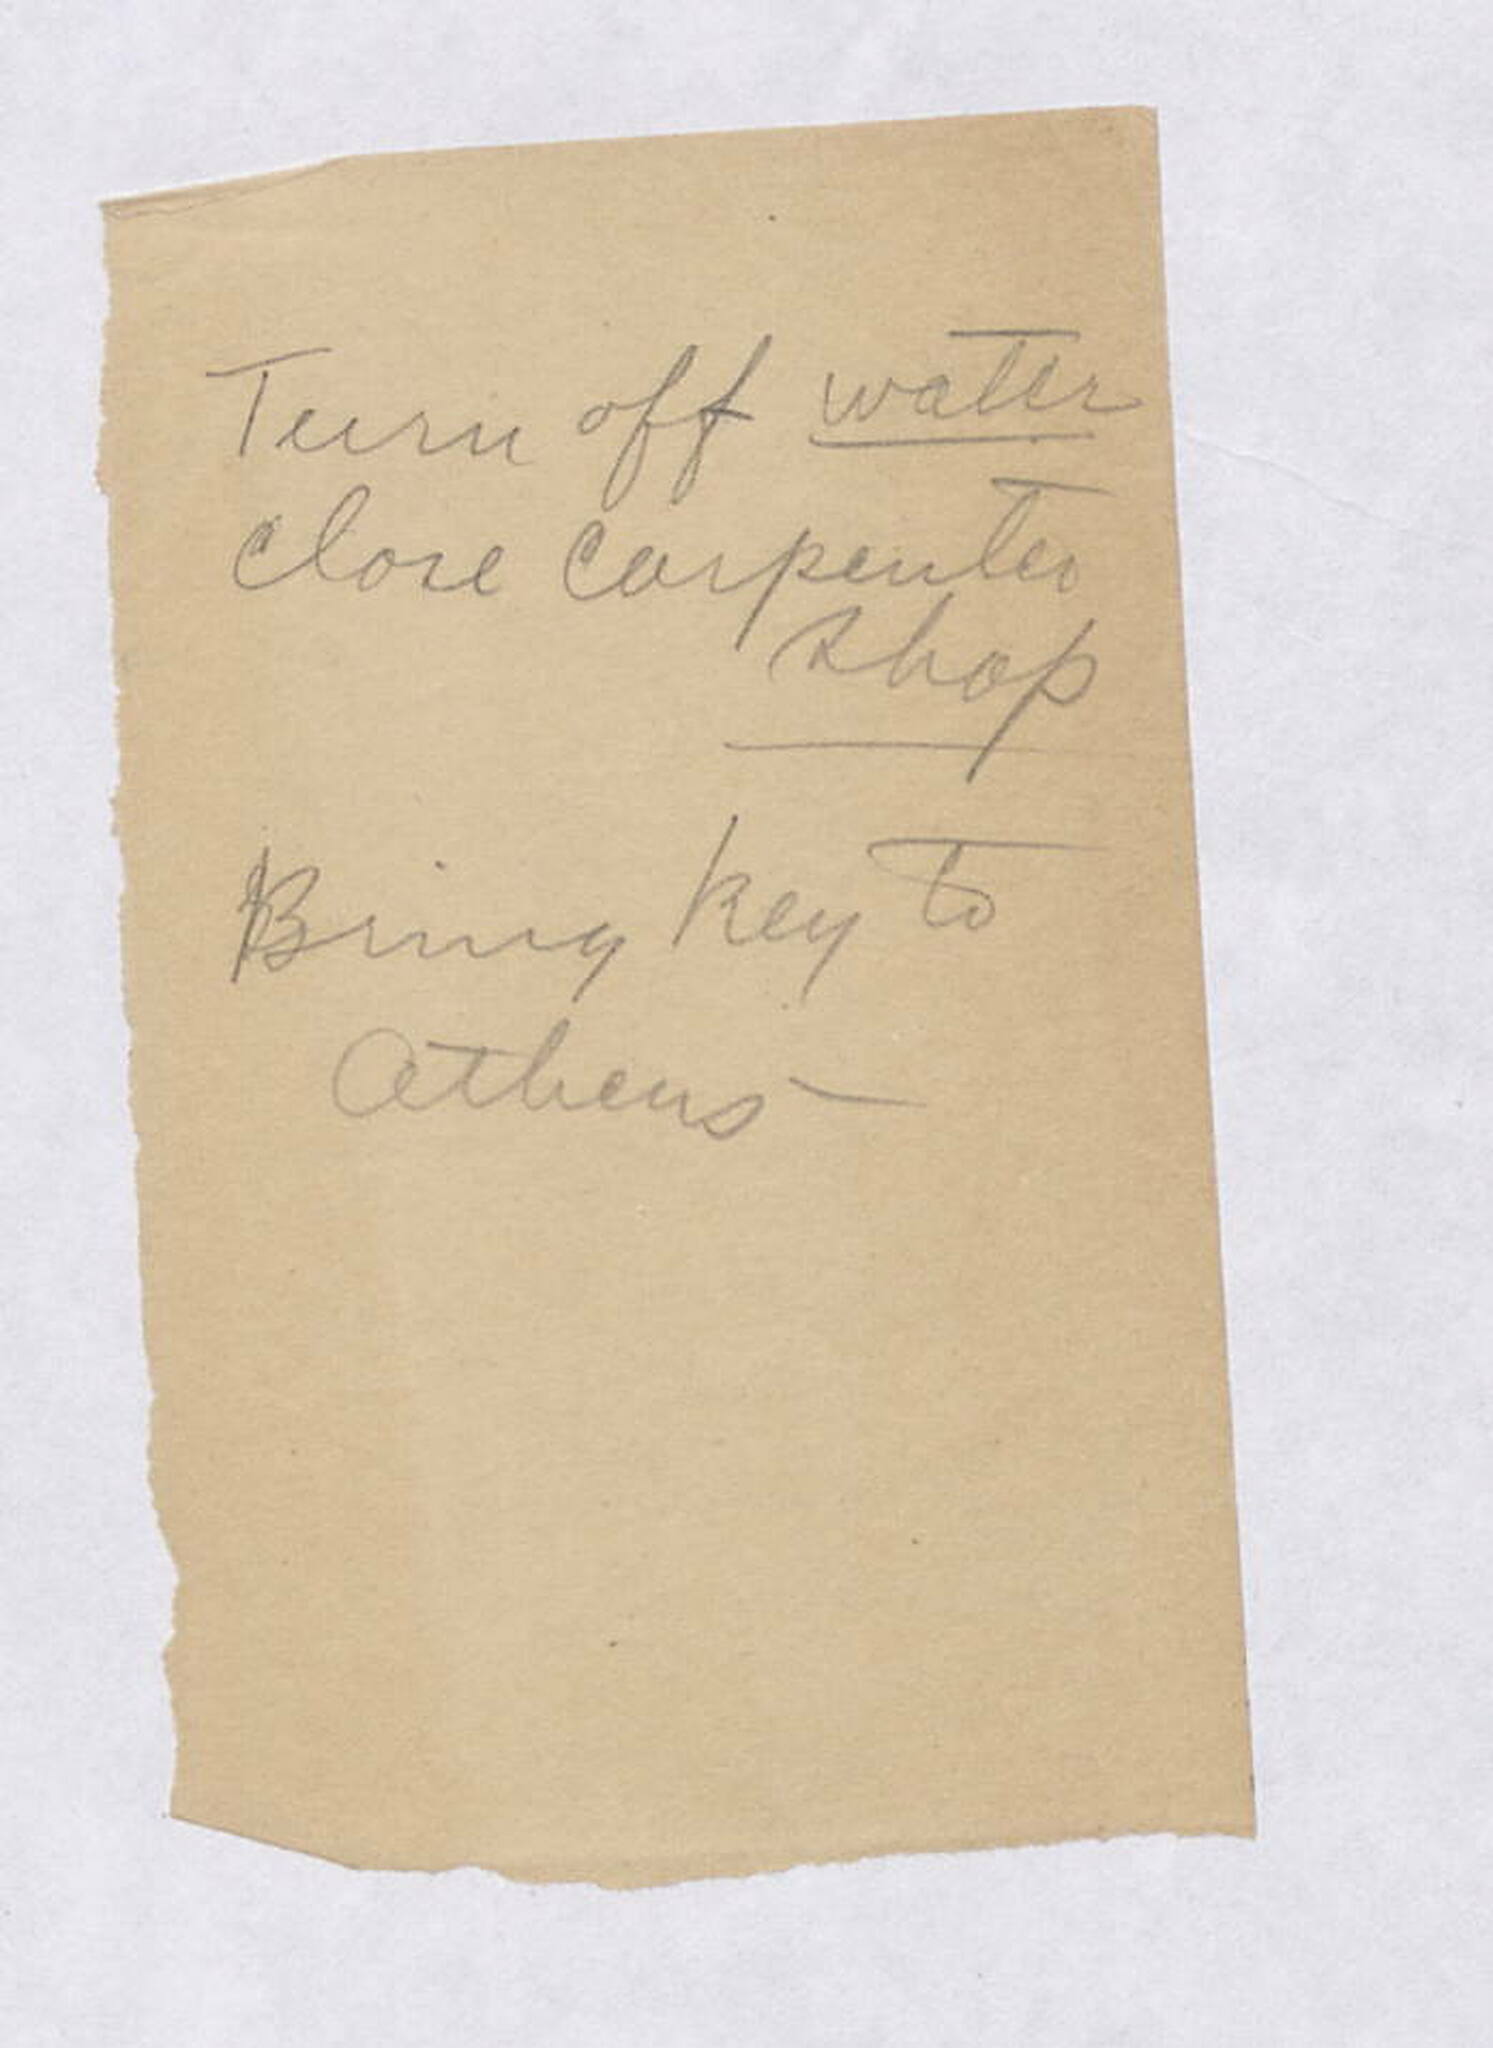 Turn off water
close carpenter
shop
Bring key to
Athens —